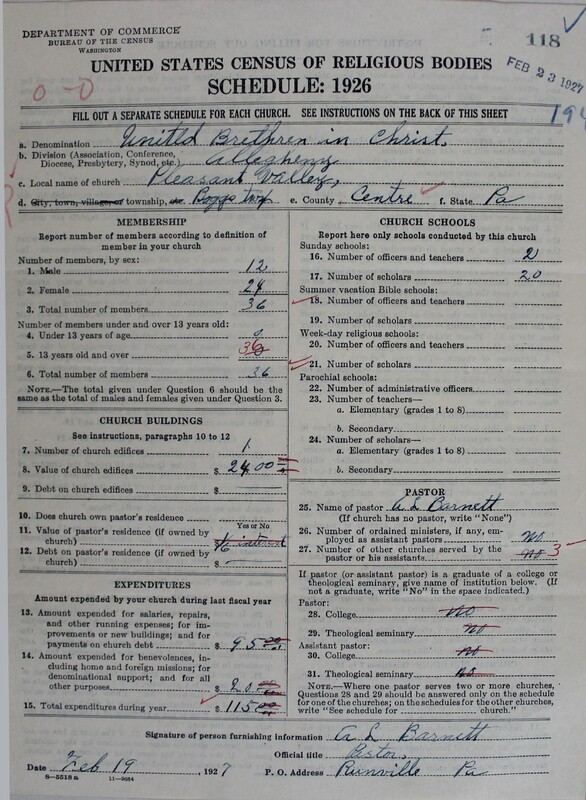 DEPARTMENT OF COMMERCE
BUREAU OF THE CENSUS
WASHINGTON
118
UNITED STATES CENSUS OF RELIGIOUS BODIES
FEB 23 1927
SCHEDULE: 1926
0-0
FILL OUT A SEPARATE SCHEDULE FOR EACH CHURCH. SEE INSTRUCTIONS ON THE BACK OF THIS SHEET
194
a. Denomination United Brethren in Christ,
b. Division (Association, Conference, Diocese, Presbytery, Synod, etc.) Allegheny
c. Local name of church Pleasant Valley,
d. City, town, village, or township, etc. Boggs twp. e. County Centre f. State Pa
MEMBERSHIP
Report number of members according to definition of
member in your church
Number of members, by sex:
1. Male 12
2. Female 24
3. Total number of members 36
Number of members under and over 13 years old:
4. Under 13 years of age 0
5. 13 years old and over 36
6. Total number of members 36
NOTE.—The total given under Question 6 should be
same as the total of males and females given under Question 3.
CHURCH BUILDINGS
See instructions, paragraphs 10 to 12
7. Number of church edifices 1
8. Value of church edifices $ 2400
9. Debt on church edifices $
10. Does church own pastor's residence
Yes or No
11. Value of pastor's residence (if owned by
church) $
12. Debt on pastor's residence (if owned by
church) $
EXPENDITURES
Amount expended by your church during last fiscal year
13. Amount expended for salaries, repairs,
and other running expenses; for im-
provements or new buildings; and for
payments on church debt $ 95.00
14. Amount expended for benevolences,
including home and foreign missions; for
denominational support; and for all
other purposes $ 20.00
15. Total expenditures during year $ 115.00
CHURCH SCHOOLS
Report here only schools conducted by this church
Sunday schools:
16. Number of officers and teachers 2
17. Number of scholars 20
Summer vacation Bible schools:
18. Number of officers and teachers
19. Number of scholars
Week-day religious schools:
20. Number of officers and teachers
21. Number of scholars
Parochial schools:
22. Number of administrative officers
23. Number of teachers—
a. Elementary (grades 1 to 8)
b. Secondary
24. Number of scholars—
a. Elementary (grades 1 to 8)
b. Secondary
PASTOR
25. Name of pastor A L Barnett
(If church has no pastor, write "None")
26. Number of ordained ministers, if any, em-
ployed as assistant pastors No
27. Number of other churches served by the
pastor or his assistants No 3
If pastor (or assistant pastor) is a graduate of a college or
theological seminary, give name of institution below. (If
not a graduate, write "No" in the space indicated.)
Pastor:
28. College No
29. Theological seminary No
Assistant pastor:
30. College No
31. Theological seminary No
NOTE.—Where one pastor serves two or more churches,
Questions 28 and 29 should be answered only on the schedule
for one of the churches; on the schedules for the other churches,
write "See schedule for church."
Signature of person furnishing information A L Barnett
Official title Pastor,
Date Feb 19, 1927 P. O. Address Runville Pa
8-5518a 11-9684